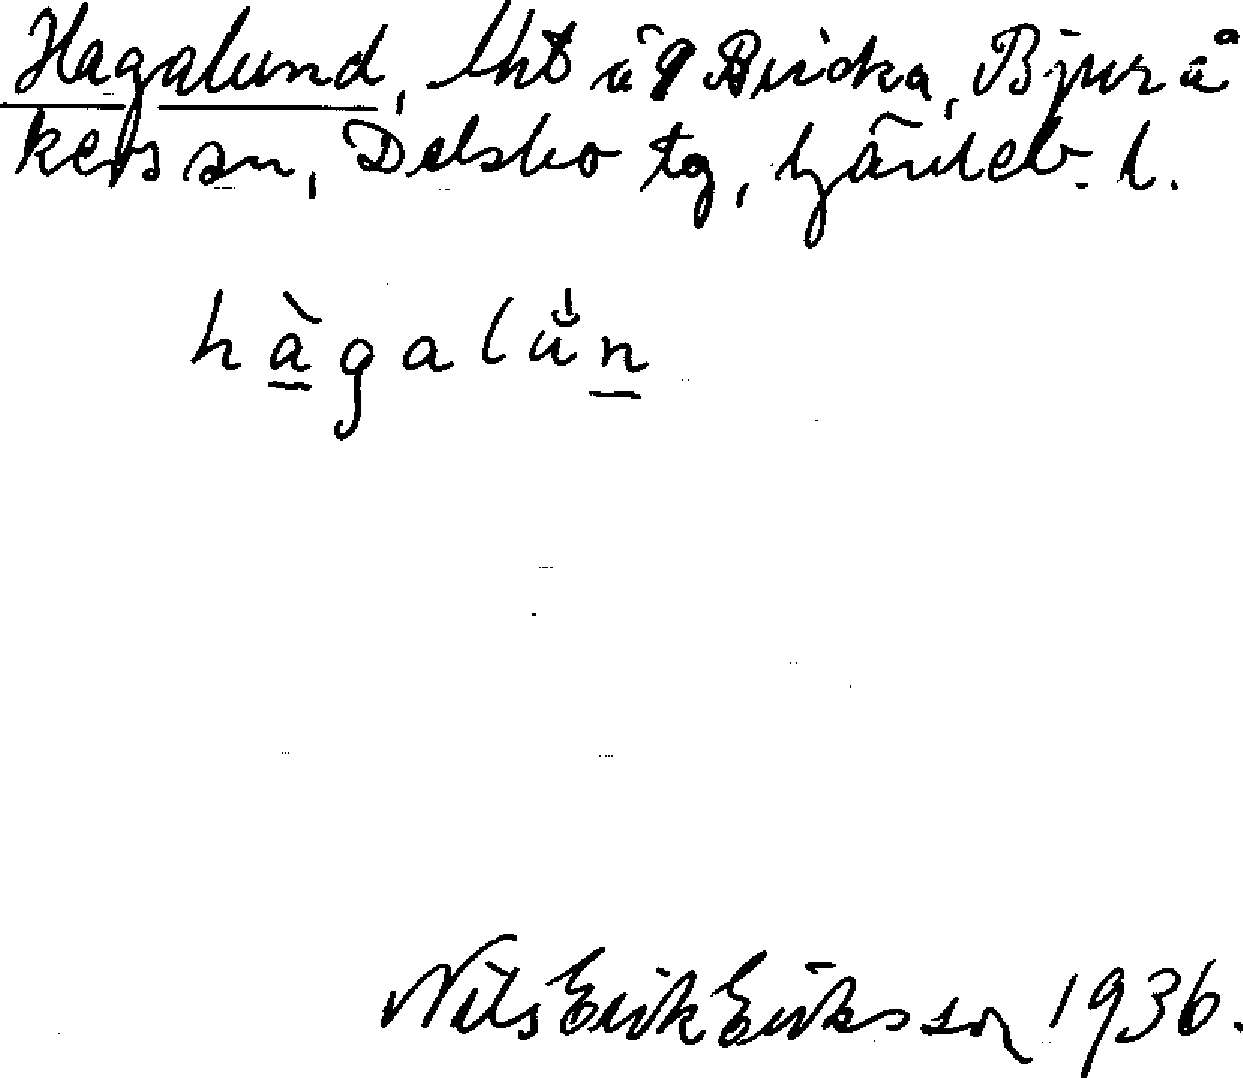 Hagalund, lht å Bricka, Bjurå
kers sn, Delsbo tg, Gävleb. l.
hàgalun
Nils Erik Eriksson 1936.